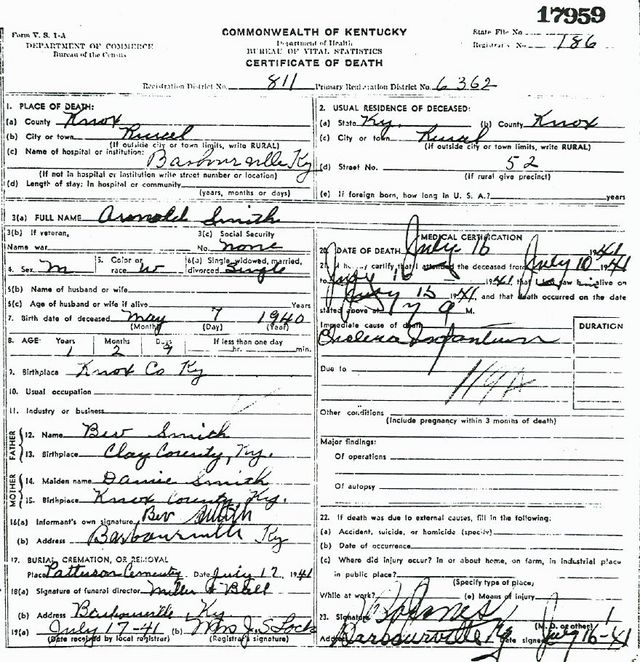 17959
Form V. S. 1-A
DEPARTMENT OF COMMERCE
Bureau of the Census
COMMONWEALTH OF KENTUCKY
Department of Health
BUREAU OF VITAL STATISTICS
CERTIFICATE OF DEATH
State File No.
Registrar's No. 186
Registration District No. 811 Primary Registration District No. 6362
1. PLACE OF DEATH:
(a) County Knox
(b) City or town Rural
(If outside city or town limits, write RURAL)
(c) Name of hospital or institution: Barbourville Ky
(If not in hospital or institution write street number or location)
(d) Length of stay: In hospital or community
(years, months or days)
2. USUAL RESIDENCE OF DECEASED:
(a) State Ky. (b) County Knox
(c) City or town Rural
(If outside city or town limits, write RURAL)
(d) Street No. 52
(If rural give precinct)
(e) If foreign born, how long in U. S. A.? years
3(a) FULL NAME Smith
3(b) If veteran,
Name war
3(c) Social Security
No. none
4. Sex M
5. Color or
race W
6(a) Single, widowed, married,
divorced Single
6(b) Name of husband or wife
6(c) Age of husband or wife if alive Years
7. Birth date of deceased May 7 1940
(Month) (Day) (Year)
8. AGE: Years Months Days If less than one day
1 2 9 hr. min.
9. Birthplace Knox Co Ky
10. Usual occupation
11. Industry or business
FATHER
12. Name Bev Smith
13. Birthplace Clay County, Ky.
MOTHER
14. Maiden name Smith
15. Birthplace Knox County Ky.
16(a) Informant's own signature Bev Smith
(b) Address Barbourville Ky
17. BURIAL, CREMATION, OR REMOVAL
Place Patterson Cemetery Date July 17, 1941
18(a) Signature of funeral director Miller & Ball
(b) Address Barbourville Ky
19(a) July 17-41 (b) Mrs J. S. Lock
(Date received by local registrar) (Registrar's signature)
MEDICAL CERTIFICATION
20. DATE OF DEATH July 16 1941
21. I hereby certify that I attended the deceased from July 10 1941
to July 16 1941, that I last saw h alive on
July 15 1941, and that death occurred on the date
stated above at M.
Immediate cause of death
Cholera Infantum
DURATION
Due to
119A
Other conditions
(Include pregnancy within 3 months of death)
Major findings:
Of operations
Of autopsy
22. If death was due to external causes, fill in the following:
(a) Accident, suicide, or homicide (specify)
(b) Date of occurrence
(c) Where did injury occur? In or about home, on farm, in industrial place
in public place?
(Specify type of place)
While at work? (e) Means of injury
23. Signature Jones
(M. D. or other)
Address Barbourville Ky Date signed July 16-41